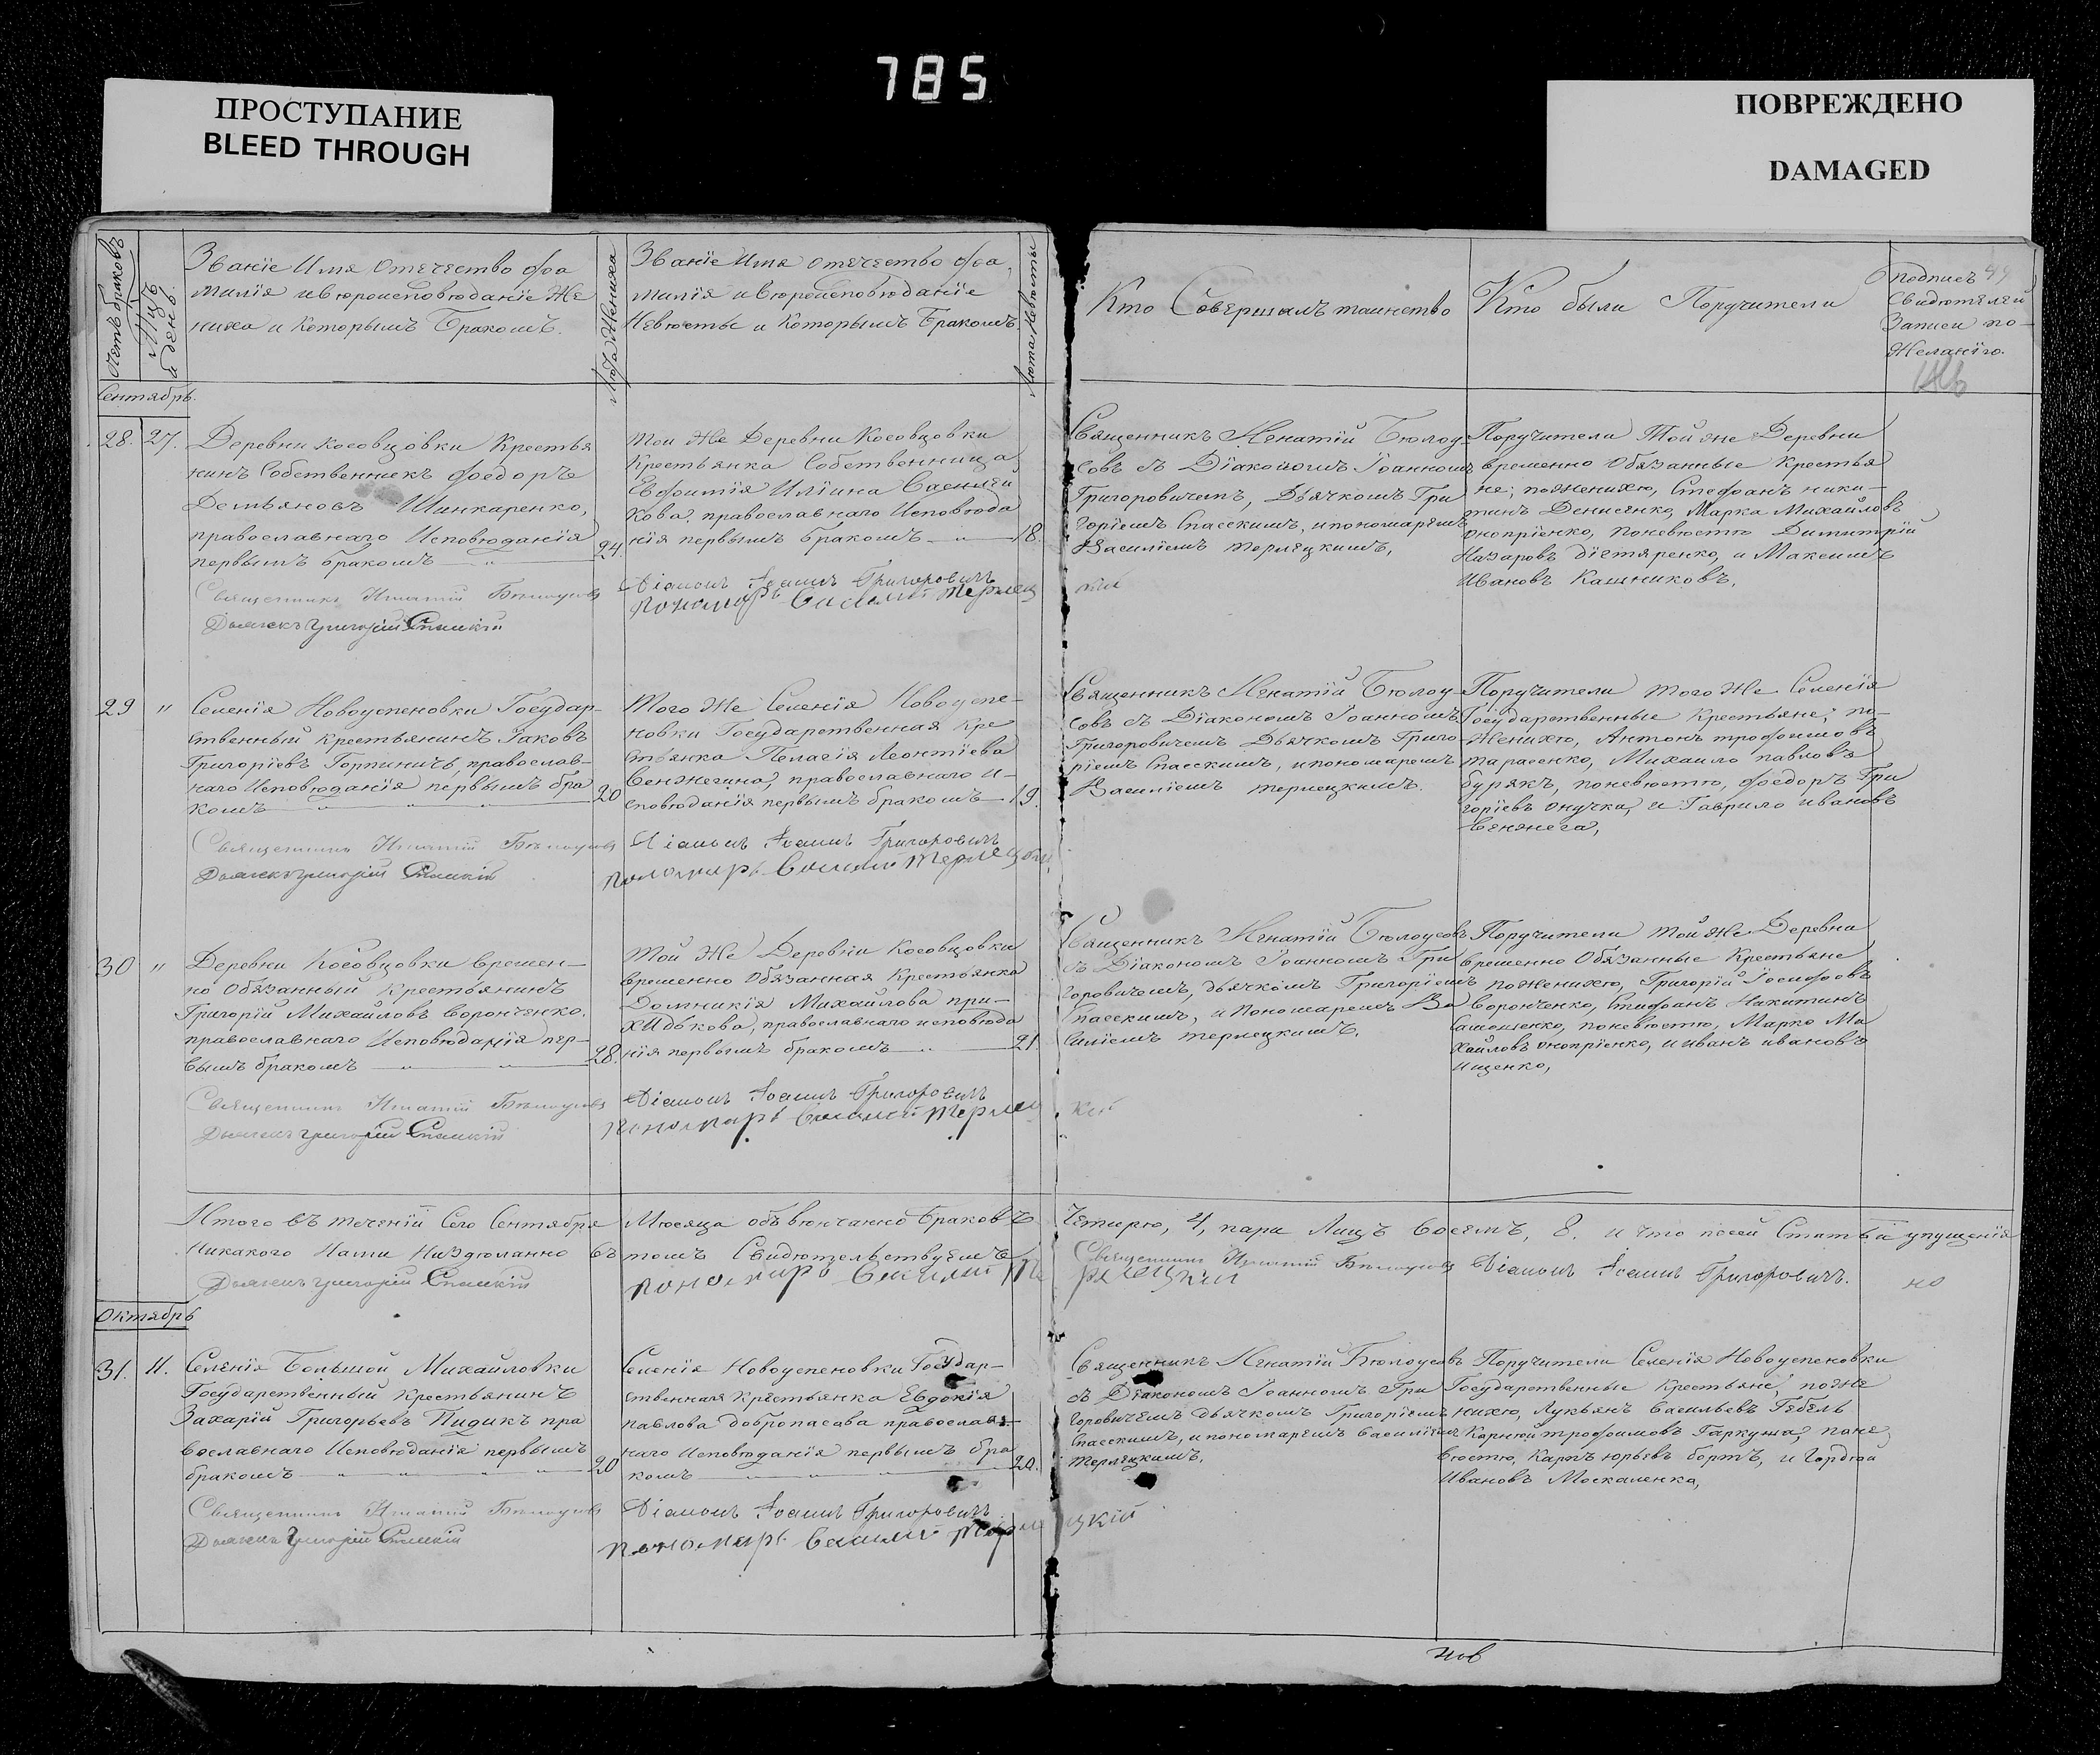 785
ПРОСТУПАНИЕ
BLEED THROUGH
ПОВРЕЖДЕНО
DAMAGED
Счетъ браковъ
Мцъ
и день.
Званіе Имя Отечество фа
милія и вѣроисповѣданіе Же
ниха и Которымъ Бракомъ.
Лѣта Жениха
Званіе Имя Отечество фа,
милія и вѣроисповѣданіе
Невѣсты и Которымъ Бракомъ.
Лѣта Невѣсты
Кто Совершалъ таинство
Кто были Поручители
Подпись
Свидѣтелей
Записи по-
Желанію.
Сентябрь.
28. 27.
Деревни Косовцовки Крестья
нинъ Собственникъ Федоръ
Демьяновъ Шинкаренко,
православнаго Исповѣданія
первымъ бракомъ
24.
Священникъ Игнатій Бѣлоусовъ
Дьячекъ Григорій Спасскій
Той Же Деревни Косовцовки
Крестьянка Собственница,
Евфимія Иліина Василь
кова, православнаго Исповѣда
нія первымъ бракомъ
18.
Діаконъ Іоаннъ Григоровичъ
Пономарь Василій Терлец
кій
Священникъ Игнатій Бѣлоу-
совъ съ Діакономъ Іоанномъ
Григоровичемъ, Дьячкомъ Гри
горіемъ Спасскимъ, и пономаремъ
Василіемъ Терлецкимъ,
Поручители Той же Деревни
временно Обязанные Крестья
не; по женихѣ, Стефанъ Ники-
тинъ Денисенко, Марка Михайловъ
Оноприенко, по невѣстѣ Димитрій
Назаровъ Дѣгтяренко, и Максимъ
Ивановъ Кашниковъ.
29 "
Селенія Новоуспеновки Государ-
ственный Крестьянинъ Іаковъ
Григоріевъ Горпиничъ, православ-
наго Исповѣданія первымъ бра
комъ
20
Священникъ Игнатій Бѣлоусовъ
Дьячекъ Григорій Спасскій
Того Же Селенія Новоуспе-
новки Государственная Кре
стьянка Пелагія Леонтіева
Венжегина, православнаго И-
сповѣданія первымъ бракомъ
19.
Діаконъ Іоаннъ Григоровичъ
Пономарь Василій Терлецкій
Священникъ Игнатій Бѣлоу-
совъ съ Діакономъ Іоанномъ
Григоровичемъ Дьячкомъ Григо-
ріемъ Спасскимъ, и пономаремъ
Василіемъ Терлецкимъ.
Поручители того Же Селенія
Государственные Крестьяне; по-
Женихѣ, Антонъ Трофимовъ
Тарасенко, Михаило Павловъ
бурякъ, по невѣстѣ, Федоръ Гри
горіевъ Онучка, и Гаврило Ивановъ
Венжега,
30 "
Деревни Косовцовки Времен-
но Обязанный Крестьянинъ
Григорій Михайловъ Воронченко.
православнаго Исповѣданія пер-
вымъ бракомъ
28.
Священникъ Игнатій Бѣлоусовъ
Дьячекъ Григорій Спасскій
Той Же Деревни Косовцовки
временно Обязанная Крестьянка
Домникія Михайлова при-
хидькова, православнаго исповѣда
нія первымъ бракомъ
21.
Діаконъ Іоаннъ Григоровичъ
Пономарь Василій Терлец
кій
Священникъ Игнатій Бѣлоусовъ
съ Діакономъ Іоанномъ Гри
горовичемъ, дьячкомъ Григоріемъ
Спасскимъ, и Пономаремъ Ва
силіемъ Терлецкимъ.
Поручители Той Же Деревни
Временно Обязанные Крестьяне
по женихѣ, Григорій Іосифовъ
Воронченко, Стефанъ Никитинъ
по невѣстѣ, Марко Ми
хайловъ Оноприенко, и Иванъ Ивановъ
Ищенко,
Итого въ теченіи Сего Сентября Мѣсяца обвѣнчанно Браковъ Четыре, 4, пара Лицъ Восемъ, 8. и что по сей Статьи упущенія
Никакого Нами Не здѣланно въ томъ Свидѣтельствуемъ
Священникъ Игнатій Бѣлоусовъ Діаконъ Іоаннъ Григоровичъ.
Дьячекъ Григорій Спасскій Пономарь Василій Терлецкій
но
Октябрь
31. 11.
Селенія Большой Михайловки
Государственный Крестьянинъ
Захарій Григорьевъ Пидикъ пра
вославнаго Исповѣданія первымъ
бракомъ
20
Священникъ Игнатій Бѣлоусовъ
Дьячекъ Григорій Спасскій
Селенія Новоуспеновки Государ-
ственная Крестьянка Евдокія
Павлова Добропасава православ-
наго Исповѣданія первымъ бра
комъ
20.
Діаконъ Іоаннъ Григоровичъ
Пономарь Василій Терлецкій
Священникъ Игнатій Бѣлоусовъ
съ Діакономъ Іоанномъ Гри
горовичемъ дьячкомъ Григоріемъ
Спасскимъ, и пономаремъ Василіемъ
Терлецкимъ.
Поручители Селенія Новоуспеновки
Государственные Крестьяне, по же
нихѣ, Лукьянъ Васильевъ Гебель
Корней Трофимовъ Гаркуша, по не
вѣстѣ, Карпъ Юрьевъ бортъ, и Гордѣй
Ивановъ Москаленко,
Нов